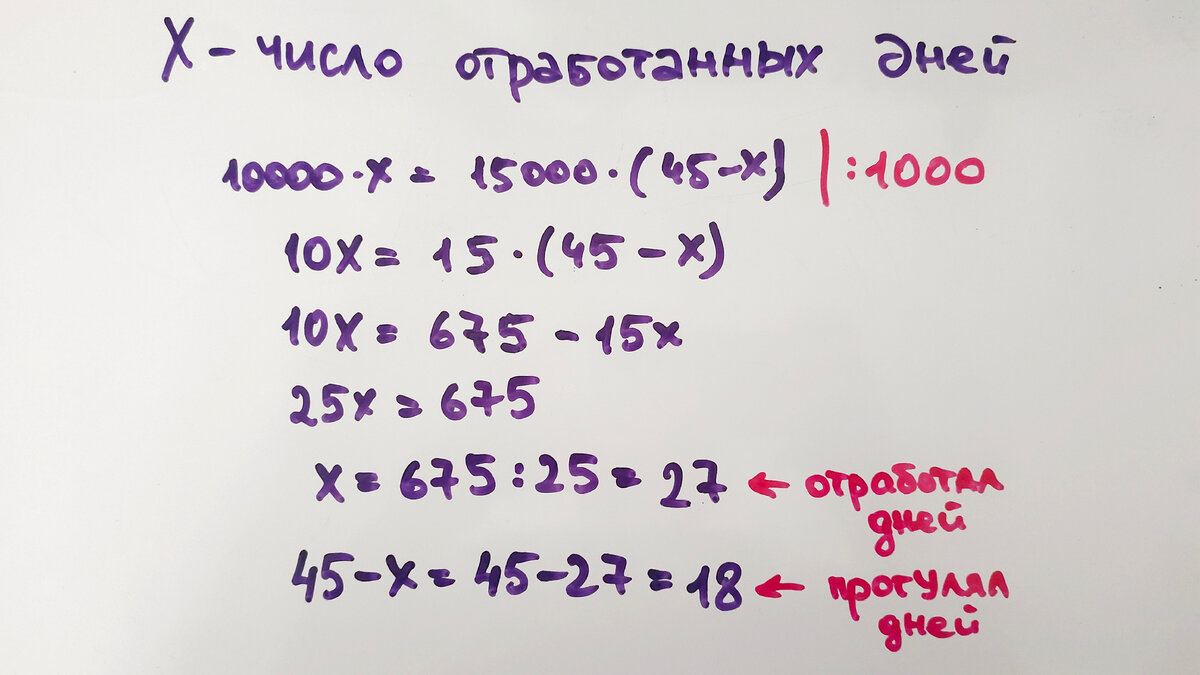 X - число отработанных дней
10000·x = 15000·(45-x) |:1000
10x = 15·(45-x)
10x = 675 - 15x
25x = 675
x = 675:25 = 27 ← отработал
дней
45-x = 45-27 = 18 ← прогулял
дней